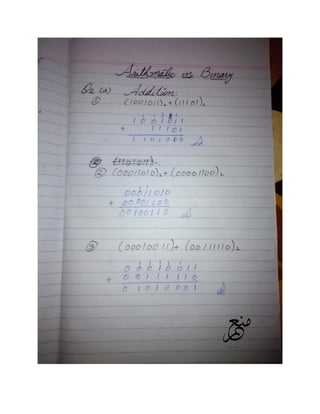 Arithmatic in Binary
Q2 (a) Addition:
① (1001011)₂ + (11101)₂
1001011
+ 11101
1101000
② (00011010)₂ + (00001100)₂
00011010
+ 00001100
00100110
③ (00010011) + (00111110)₂
00010011
+ 00111110
01010001
منع